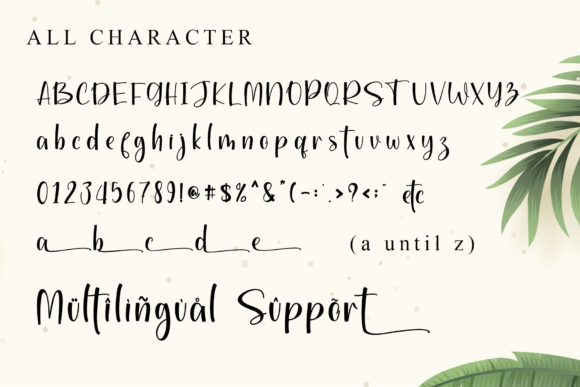 ALL CHARACTER
ABCDEFGHIJKLMNOPQRSTUVWXYZ
abcdefghijklmnopqrstuvwxyz
0123456789!@#$%^&*(-:'.>?<;" etc
a b c d e (a until z)
Mültîlìñgùål Sûppõrt